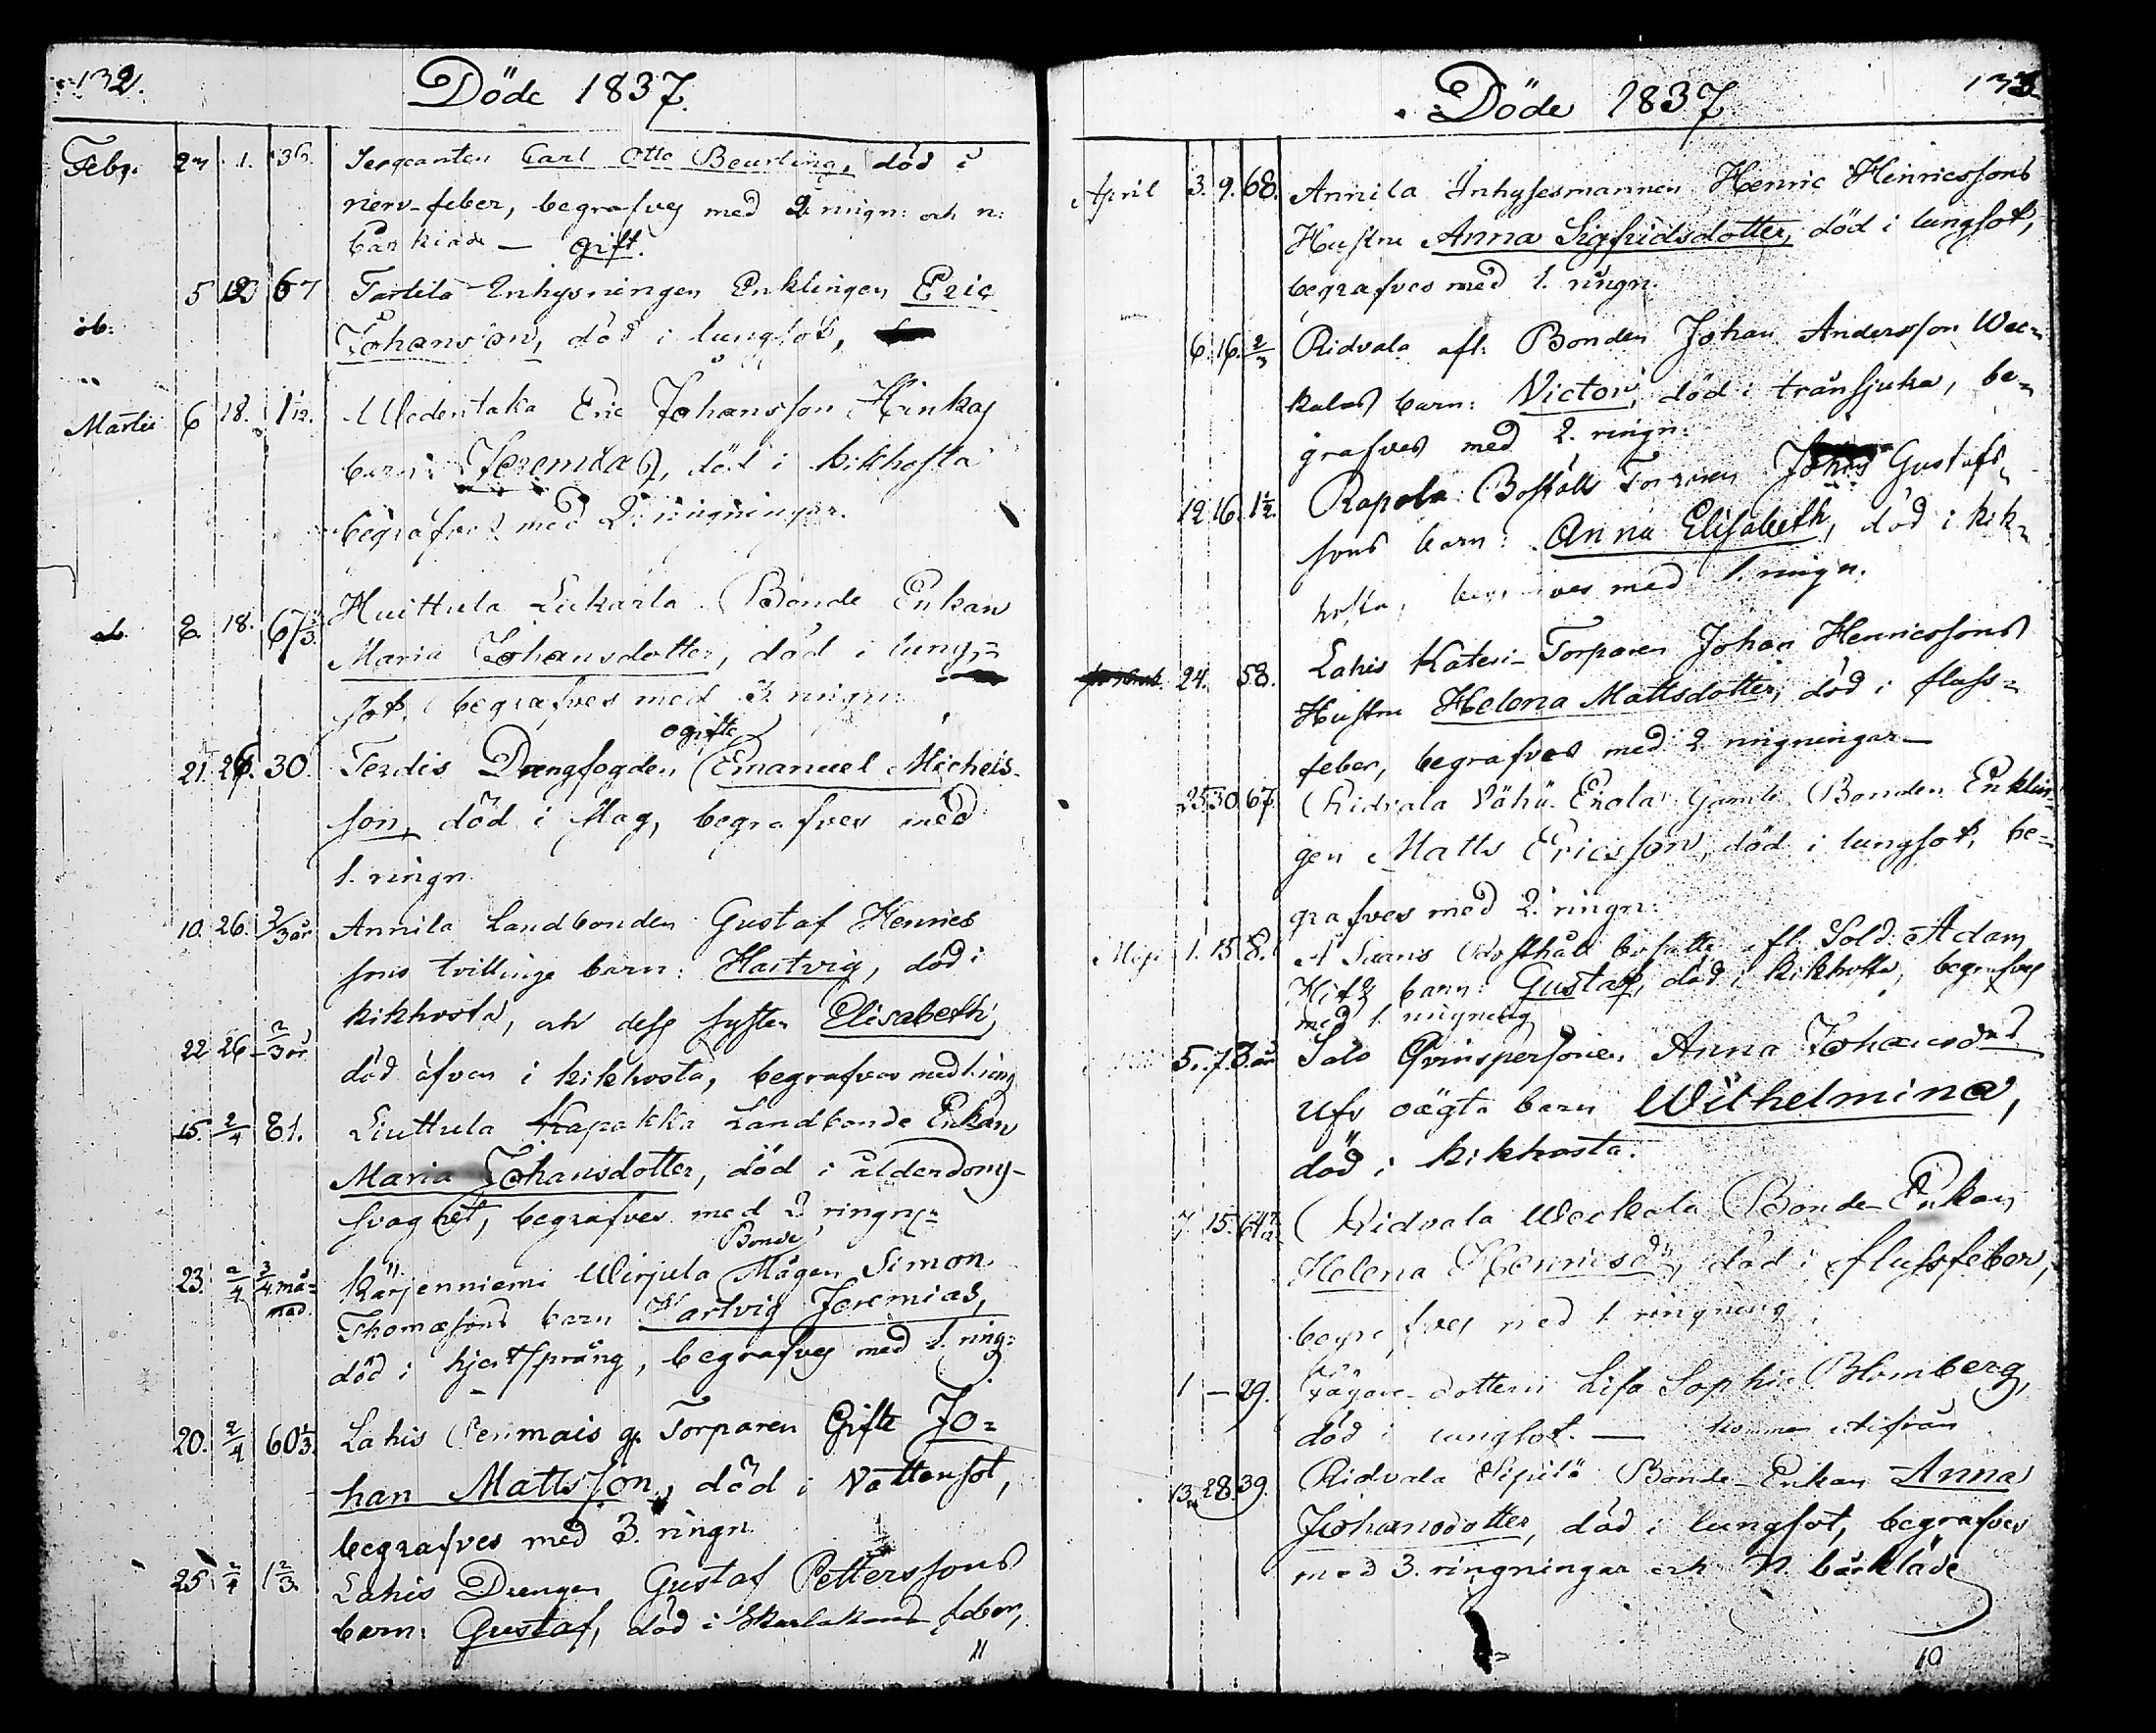 132.
Döde 1837.
Febr. 1. 36. Sergeanten Carl Otto Beurling, död i
nerv-feber, begrafves med 2 ringn: och n:
bårkläde — gift.
5 12 67 Inhysningen Enklingen Eric
Johansson, död i lungsot,
Martii 6 18. 1 1/12. Uedentaka Eric Johansson Hinkas
barn: Jeremias, död i kikhosta
begrafves med 2 ringningar.
18. 67 1/3 Huittula Lukarla Bonde Enkan
Maria Johansdotter, död i lung=
sot, begrafves med 3 ringn:
ogifte
21. 26. 30. Terdis Drengfogden Emanuel Michels-
son, död i slag, begrafves med
1. ringn.
10. 26. 2/3 år Annila Landbonden Gustaf Henrics
sons tvillinge barn: Hartvig, död i
kikhosta, och dess syster Elisabeth,
22 26 2/3 år
död äfven i kikhosta, begrafves med 1. ring
15. 2/4 81. Liuttula Kapakka Landbonde Enkan
Maria Johansdotter, död i ålderdoms-
svaghet, begrafves med 2 ringn:
Bonde
23. 2/4 3/4 må=
nad. Kärjenniemi Uirjula Mågen Simon
Thomæsons barn Hartvig Jeremias,
död i hjertsprång, begrafves med 1. ring:
20. 2/4 60 1/3. Lahis Perimais g. Torparen Gifte Jo=
han Mattsson, död i Vattusot,
begrafves med 3. ringn.
25 2/4 1 2/3. Lahis Drengen Gustaf Petterssons
barn: Gustaf, död i Skarlakans feber,
11
Döde 1837
133
April 3. 9. 68. Annila Inhysesmannen Henric Henricssons
Hustru Anna Sigfridsdotter, död i lungsot,
begrafves med 1. ringn.
6. 16. 2/3 Ridvala afl: Bonden Johan Andersson Wec=
kalas barn: Victor, död i trånsjuka, be=
grafves med 2. ringn:
12. 16. 1 1/2. Rapola Boställs Torparen Johan Gustafs=
sons barn: Anna Elisabeth, död i kik=
hosta, med 1. ringn.
24. 58. Lahis Kateri- Torparen Johan Henricssons
Hustru Helena Mattsdotter, död i fluss=
feber, begrafves med 2 ringningar—
25 30 67. Ridvala Vähä Erola Gamle Bonden Enklin=
gen Matts Ericsson, död i lungsot, be=
grafves med 2. ringn:
Maji 1. 15. 8. afl. Sold. Adam
barn: Gustaf, död i kikhosta, begrafves
med 1. ringning
5. 7. 3. år Salo Qvinspersonen Anna Johansd:s
Ufs oägta barn Wilhelmina,
död i kikhosta.
7 15. Ridvala Weckala Bonde-Enkan
Helena Henricsdr, död i flussfeber,
begrafves med 1. ringning
1 — 29. dottern Lisa Sophia Blomberg,
död i lungsot. — kommen utifrån
13. 28. 39. Ridvala Sipilä Bonde-Enkan Anna
Johansdotter, död i lungsot, begrafves
med 3. ringningar och n. bårkläde
10